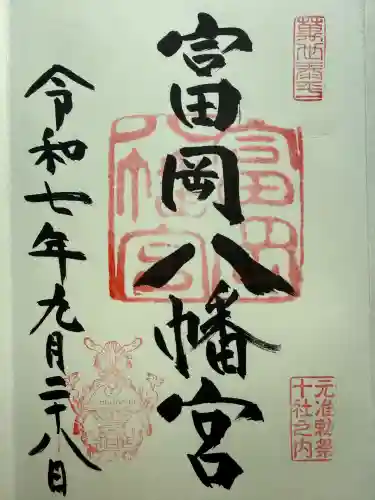 萬世泰平
富岡八幡宮
富岡八幡宮
元准勅祭
十社之内
令和七年九月二十八日